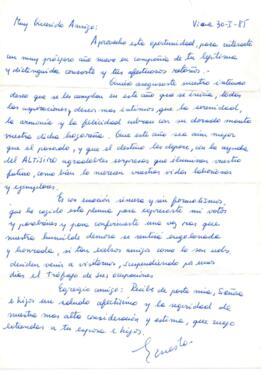 Muy querido Amigo: Viana 30-I-85
Aprovecho esta oportunidad, para enterarte
un muy próspero año nuevo en compañía de tu legítima
y distinguida consorte y tus afectuosos retoños.
Puedo asegurarte nuestro intenso
deseo que se les cumplan en este año que se inicia, todas
las aspiraciones, deseos mas intimos que la serenidad,
la armonía y la felicidad cubran con su dorado manto
vuestra dicha hogareña. Que este año sea aún mejor
que el pasado, y que el destino les depare, con la ayuda
del ALTISIMO agradables sorpresas que iluminen vuestro
futuro, como bien lo merecen vuestras vidas laboriosas
y ejemplares.
Es con emoción sincera y sin formulismos,
que he cogido esta pluma para expresarte mis votos
y parabienes y para confirmarte una vez mas que
nuestra humilde morada se sentiría engalanada
y honrada, si tan excelsos amigos como lo son uds.
deciden venir a visitarnos, suspendiendo ya unos
días el tráfago de sus ocupaciones.
Egregio amigo: Recibe de parte mía, Señora
e hijos un saludo afectísimo y la seguridad de
nuestra mas alta consideración y estima, que ruego
extiendas a tu esposa e hijos.
Ernesto